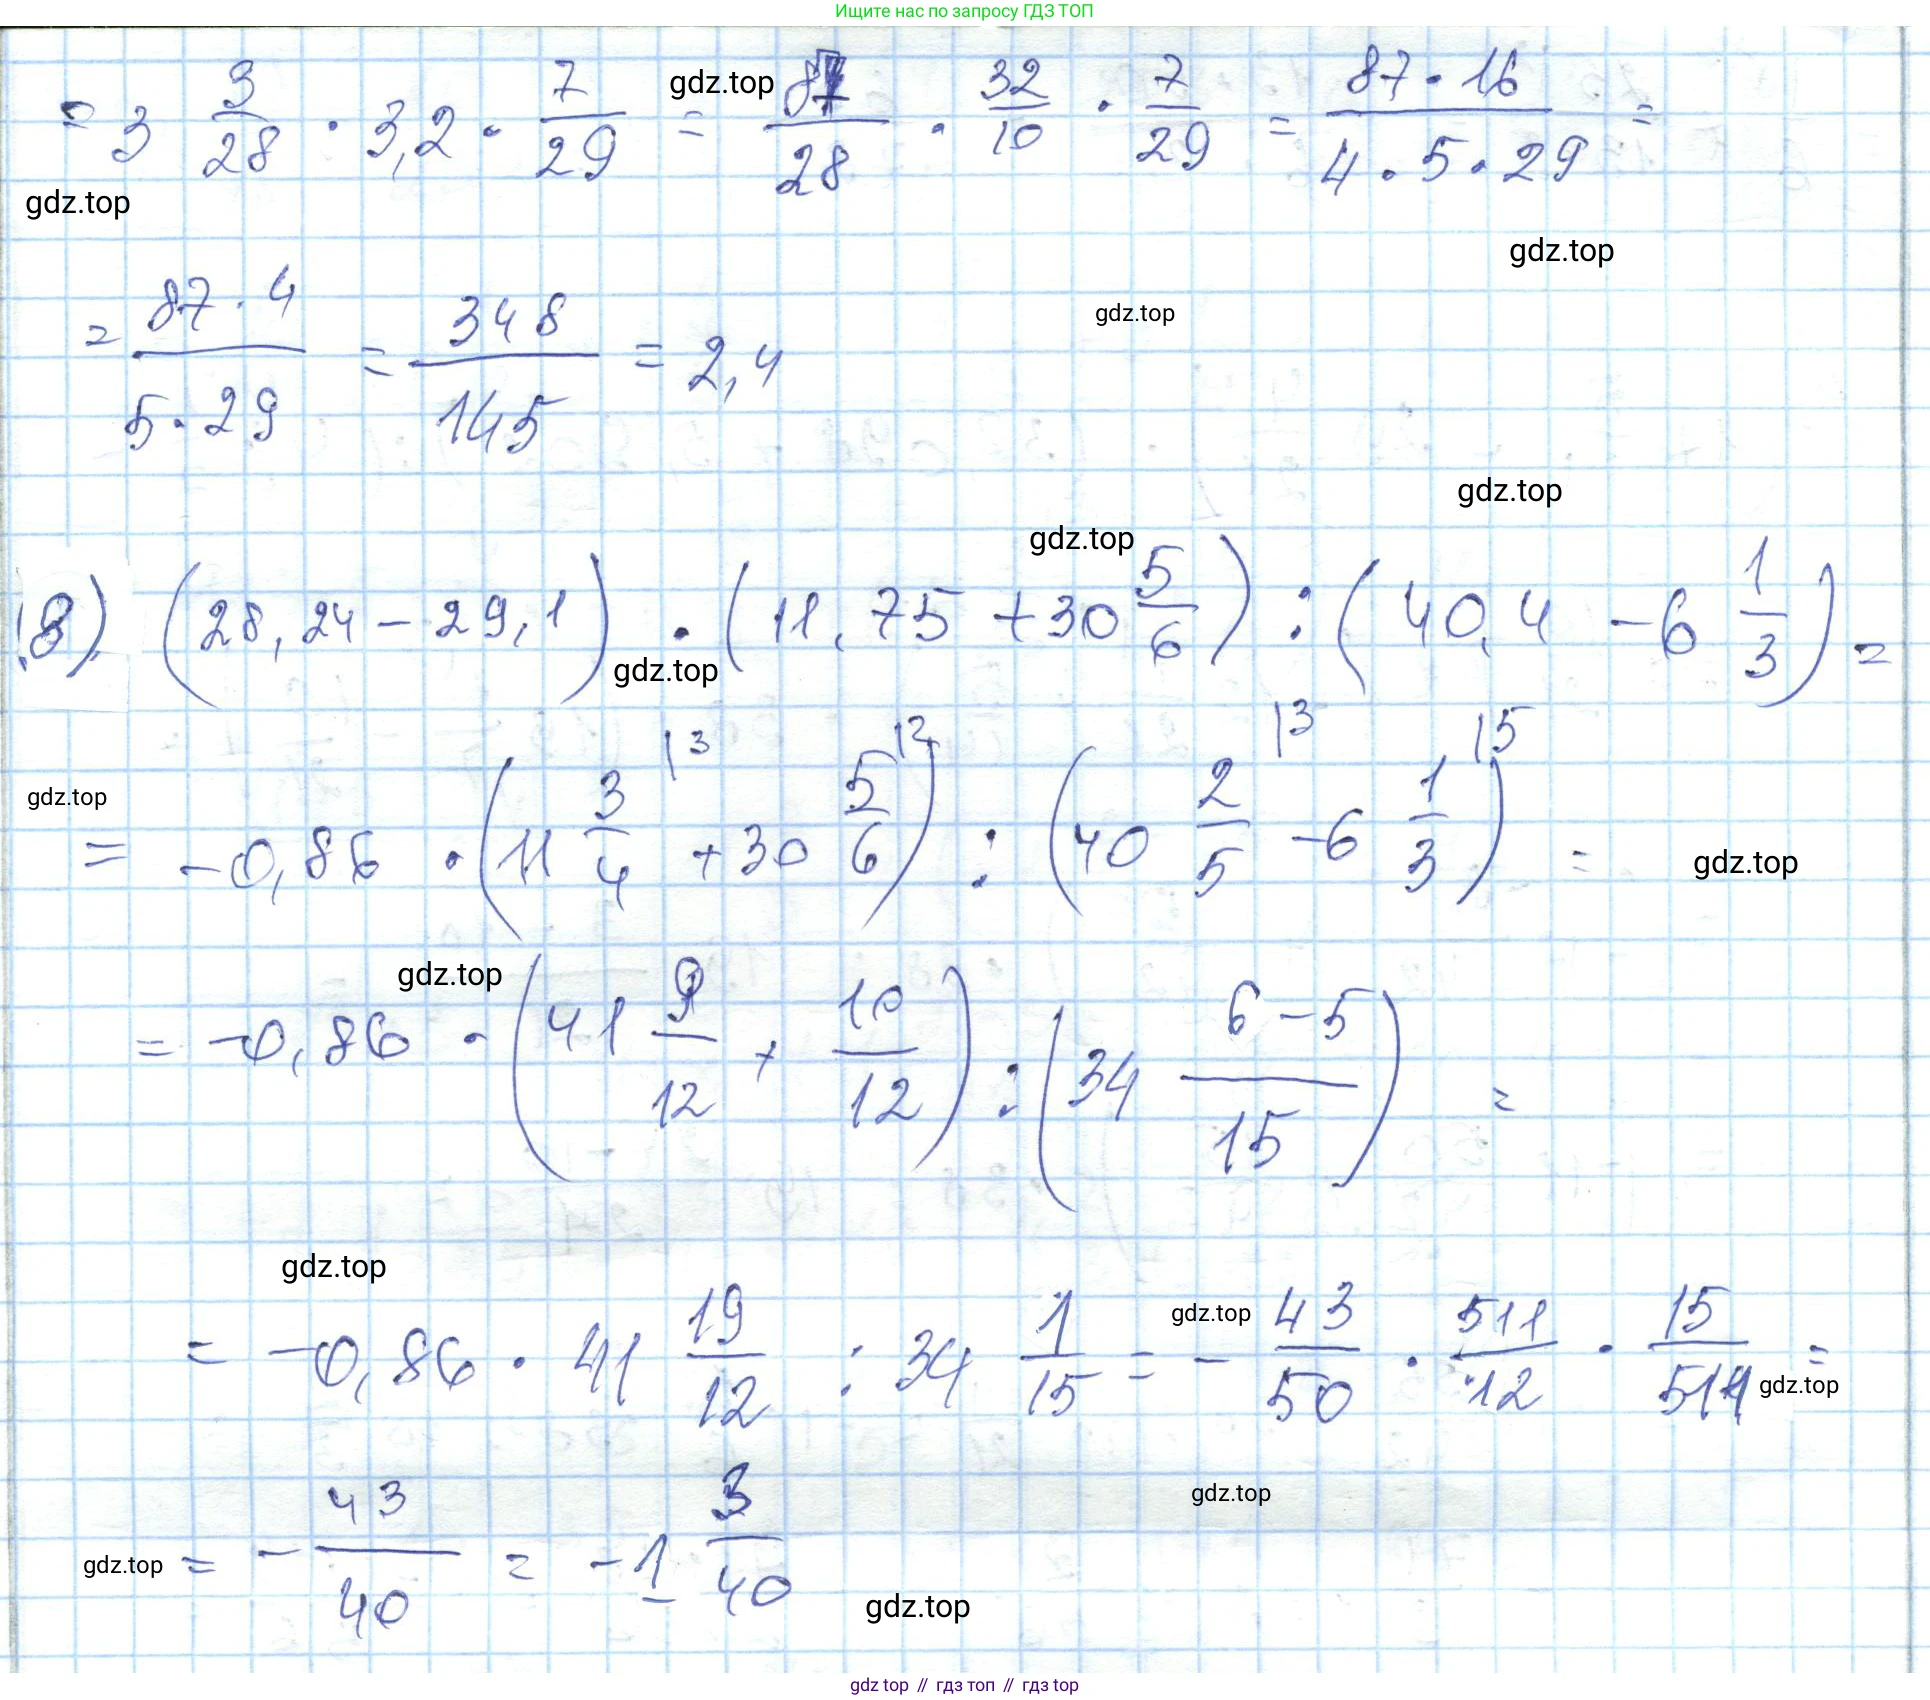 Ищите нас по запросу ГДЗ ТОП
= 3 3/28 · 3,2 · 7/29 = 87/28 · 32/10 · 7/29 = (87 · 16)/(4 · 5 · 29) =
gdz.top
gdz.top
gdz.top
= (87 · 4)/(5 · 29) = 348/145 = 2,4
gdz.top
gdz.top
gdz.top
8) (28,24 - 29,1) · (11,75 + 30 5/6) : (40,4 - 6 1/3) =
gdz.top
= -0,86 · (11 3/4 |3 + 30 5/6 |2) : (40 2/5 |3 - 6 1/3 |5) =
gdz.top
gdz.top
gdz.top
= -0,86 · (41 9/12 + 10/12) : (34 (6 - 5)/15) =
gdz.top
= -0,86 · 41 19/12 : 34 1/15 = - 43/50 · 511/12 · 15/511 =
gdz.top
gdz.top
gdz.top
= - 43/40 = -1 3/40
gdz.top
gdz.top
gdz top // гдз топ // гдз top